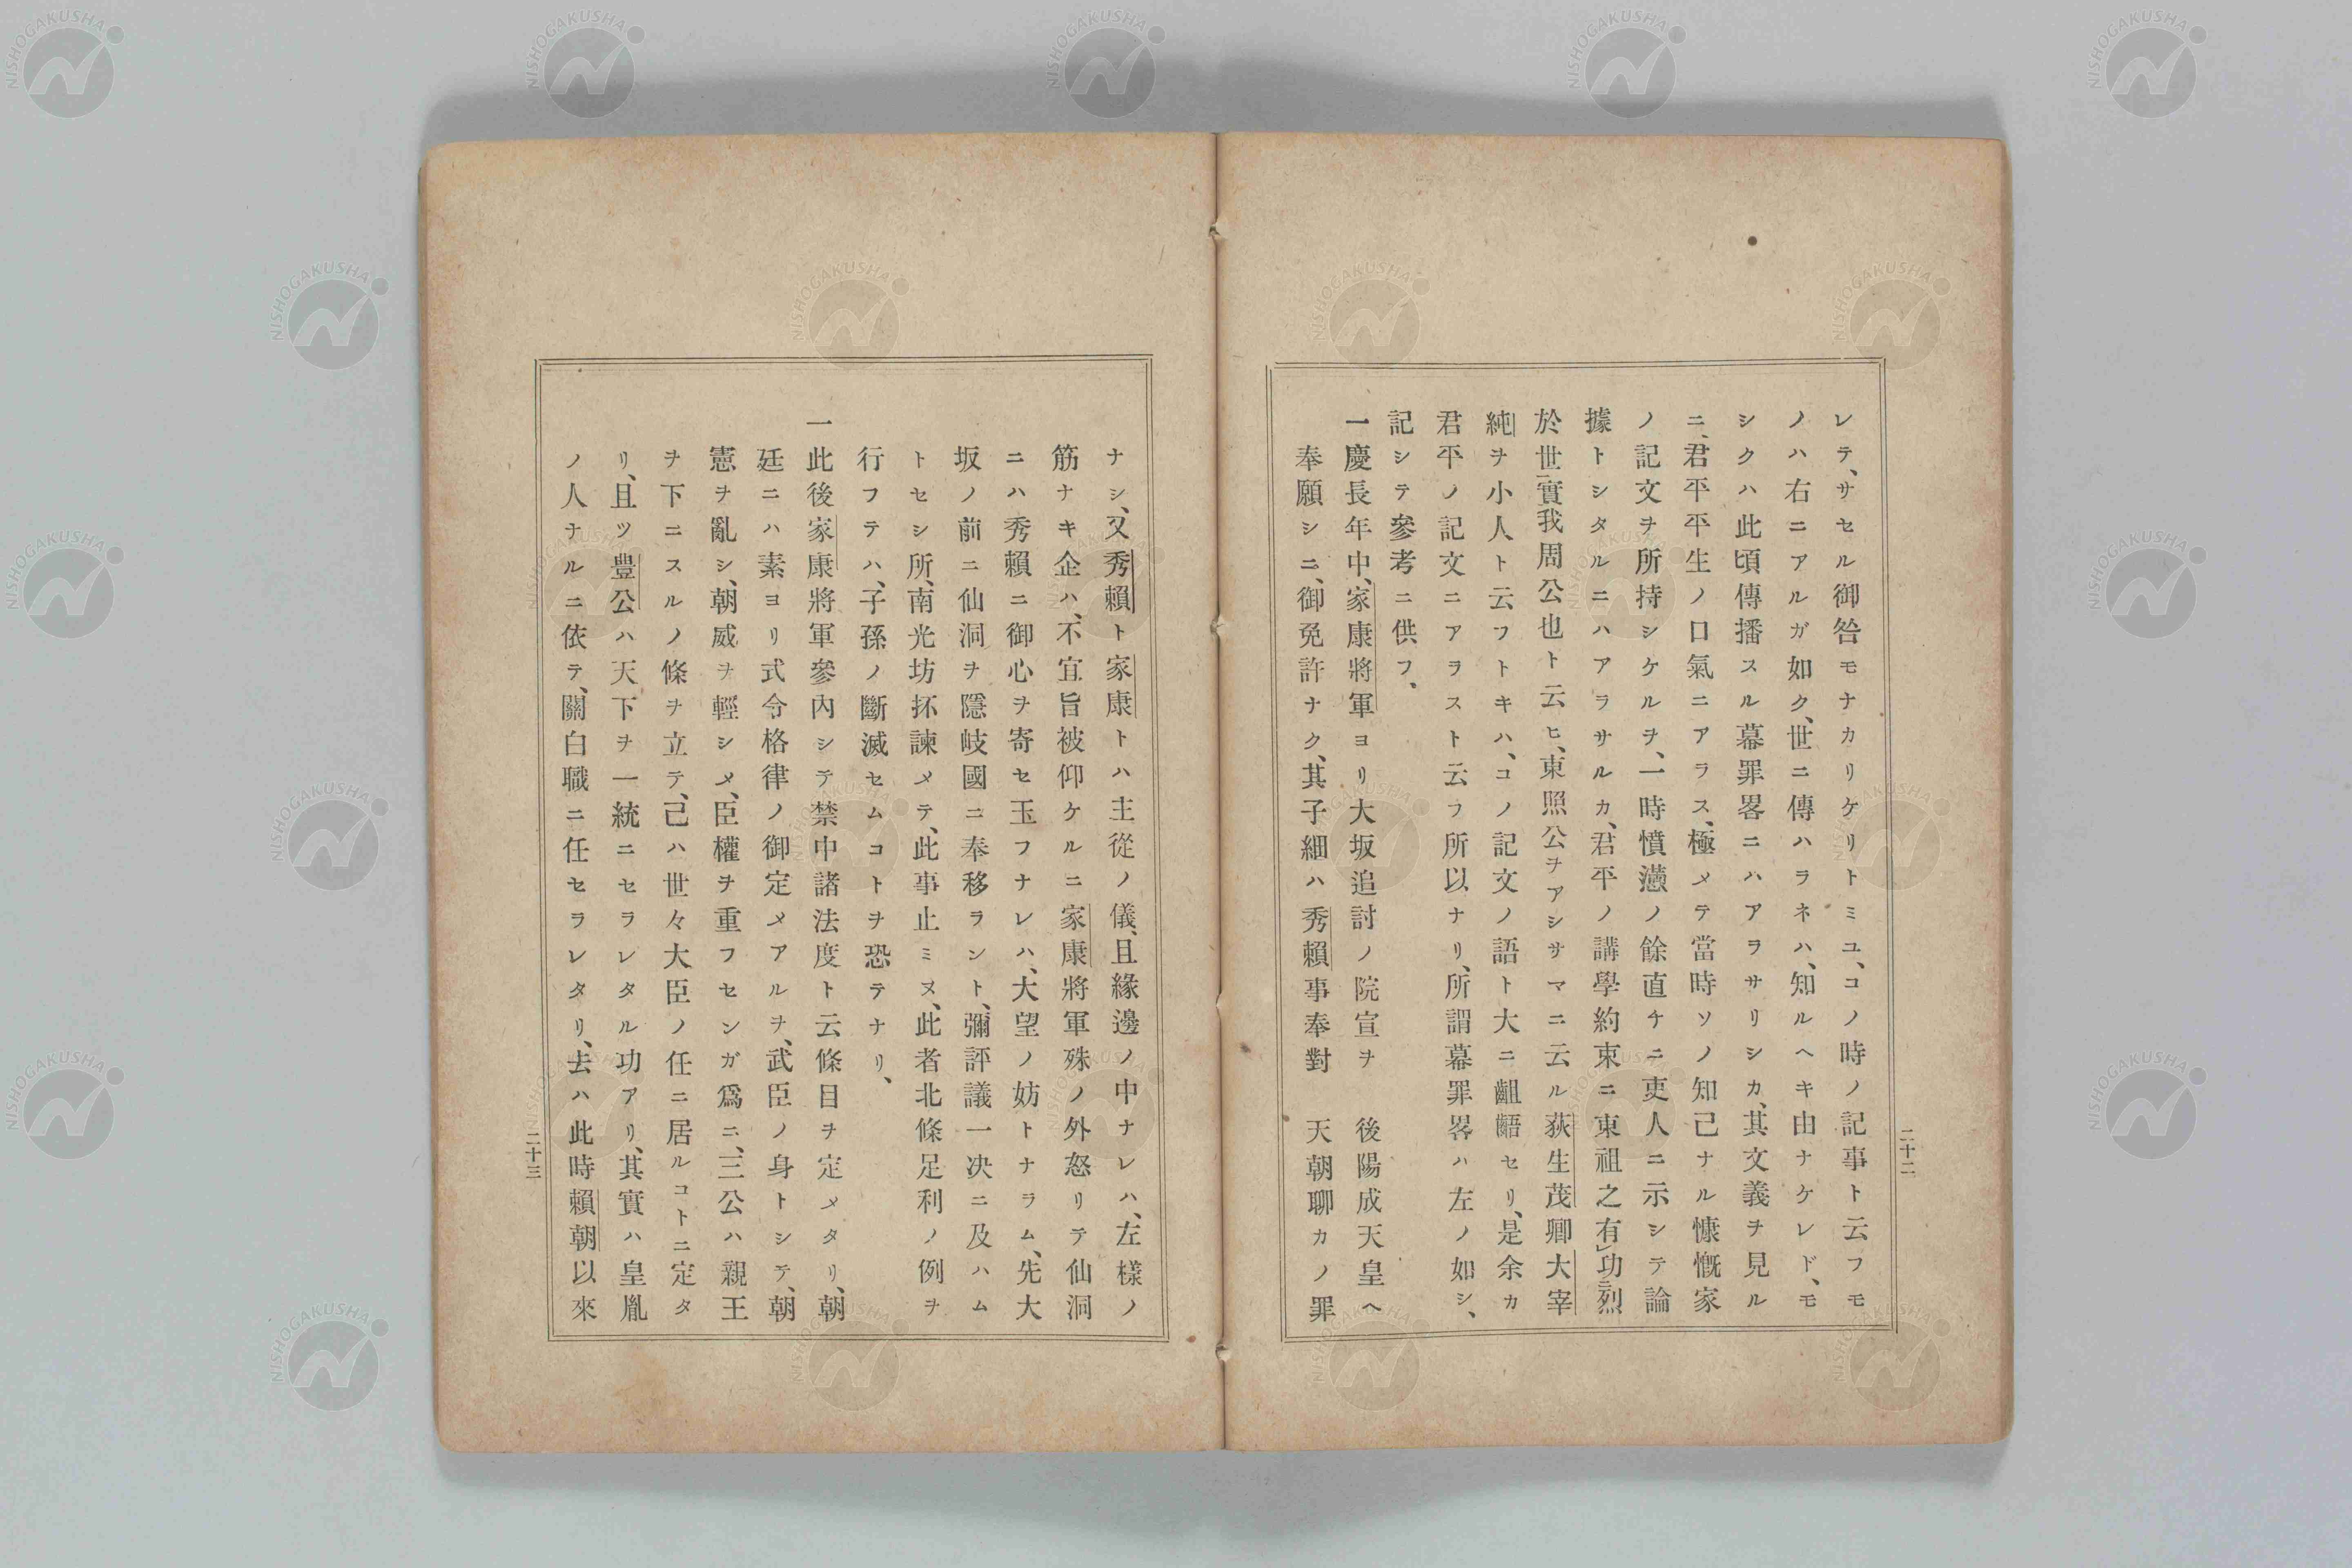 レテ、サセル御咎モナカリケリトミユ、コノ時ノ記事ト云フモ
ノハ右ニアルガ如ク、世ニ傳ハラネハ、知ルヘキ由ナケレド、モ
シクハ此頃傳播スル幕罪畧ニハアラサリシカ、其文義ヲ見ル
ニ、君平平生ノ口氣ニアラス、極メテ當時ソノ知己ナル慷慨家
ノ記文ヲ所持シケルヲ、一時憤懣ノ餘直チニ吏人ニ示シテ論
據トシタルニハアラサルカ、君平ノ講學約束ニ東祖之有功烈
於世實我周公也ト云ヒ、東照公ヲアシサマニ云ル荻生茂卿大宰
純ヲ小人ト云フトキハ、コノ記文ノ語ト大ニ齟齬セリ、是余カ
君平ノ記文ニアラスト云フ所以ナリ、所謂幕罪畧ハ左ノ如シ、
記シテ參考ニ供フ、
一慶長年中、家康將軍ヨリ大坂追討ノ院宣ヲ 後陽成天皇ヘ
奉願シニ、御免許ナク、其子細ハ秀賴事奉對 天朝聊カノ罪
二十二
ナシ、又秀賴ト家康トハ主從ノ儀、且緣邊ノ中ナレハ、左樣ノ
筋ナキ企ハ、不宜旨被仰ケルニ家康將軍殊ノ外怒リテ仙洞
ニハ秀賴ニ御心ヲ寄セ玉フナレハ、大望ノ妨トナラム、先大
坂ノ前ニ仙洞ヲ隱岐國ニ奉移ラント、彌評議一决ニ及ハム
トセシ所、南光坊抔諫メテ、此事止ミヌ、此者北條足利ノ例ヲ
行フテハ、子孫ノ斷滅セムコトヲ恐テナリ、
一此後家康將軍參內シテ禁中諸法度ト云條目ヲ定メタリ、朝
廷ニハ素ヨリ式令格律ノ御定メアルヲ、武臣ノ身トシテ、朝
憲ヲ亂シ、朝威ヲ輕シメ、臣權ヲ重フセンガ爲ニ、三公ハ親王
ヲ下ニスルノ條ヲ立テ、己ハ世々大臣ノ任ニ居ルコトニ定タ
リ、且ツ豐公ハ天下ヲ一統ニセラレタル功アリ、其實ハ皇胤
ノ人ナルニ依テ、關白職ニ任セラレタリ、去ハ此時賴朝以來
二十三